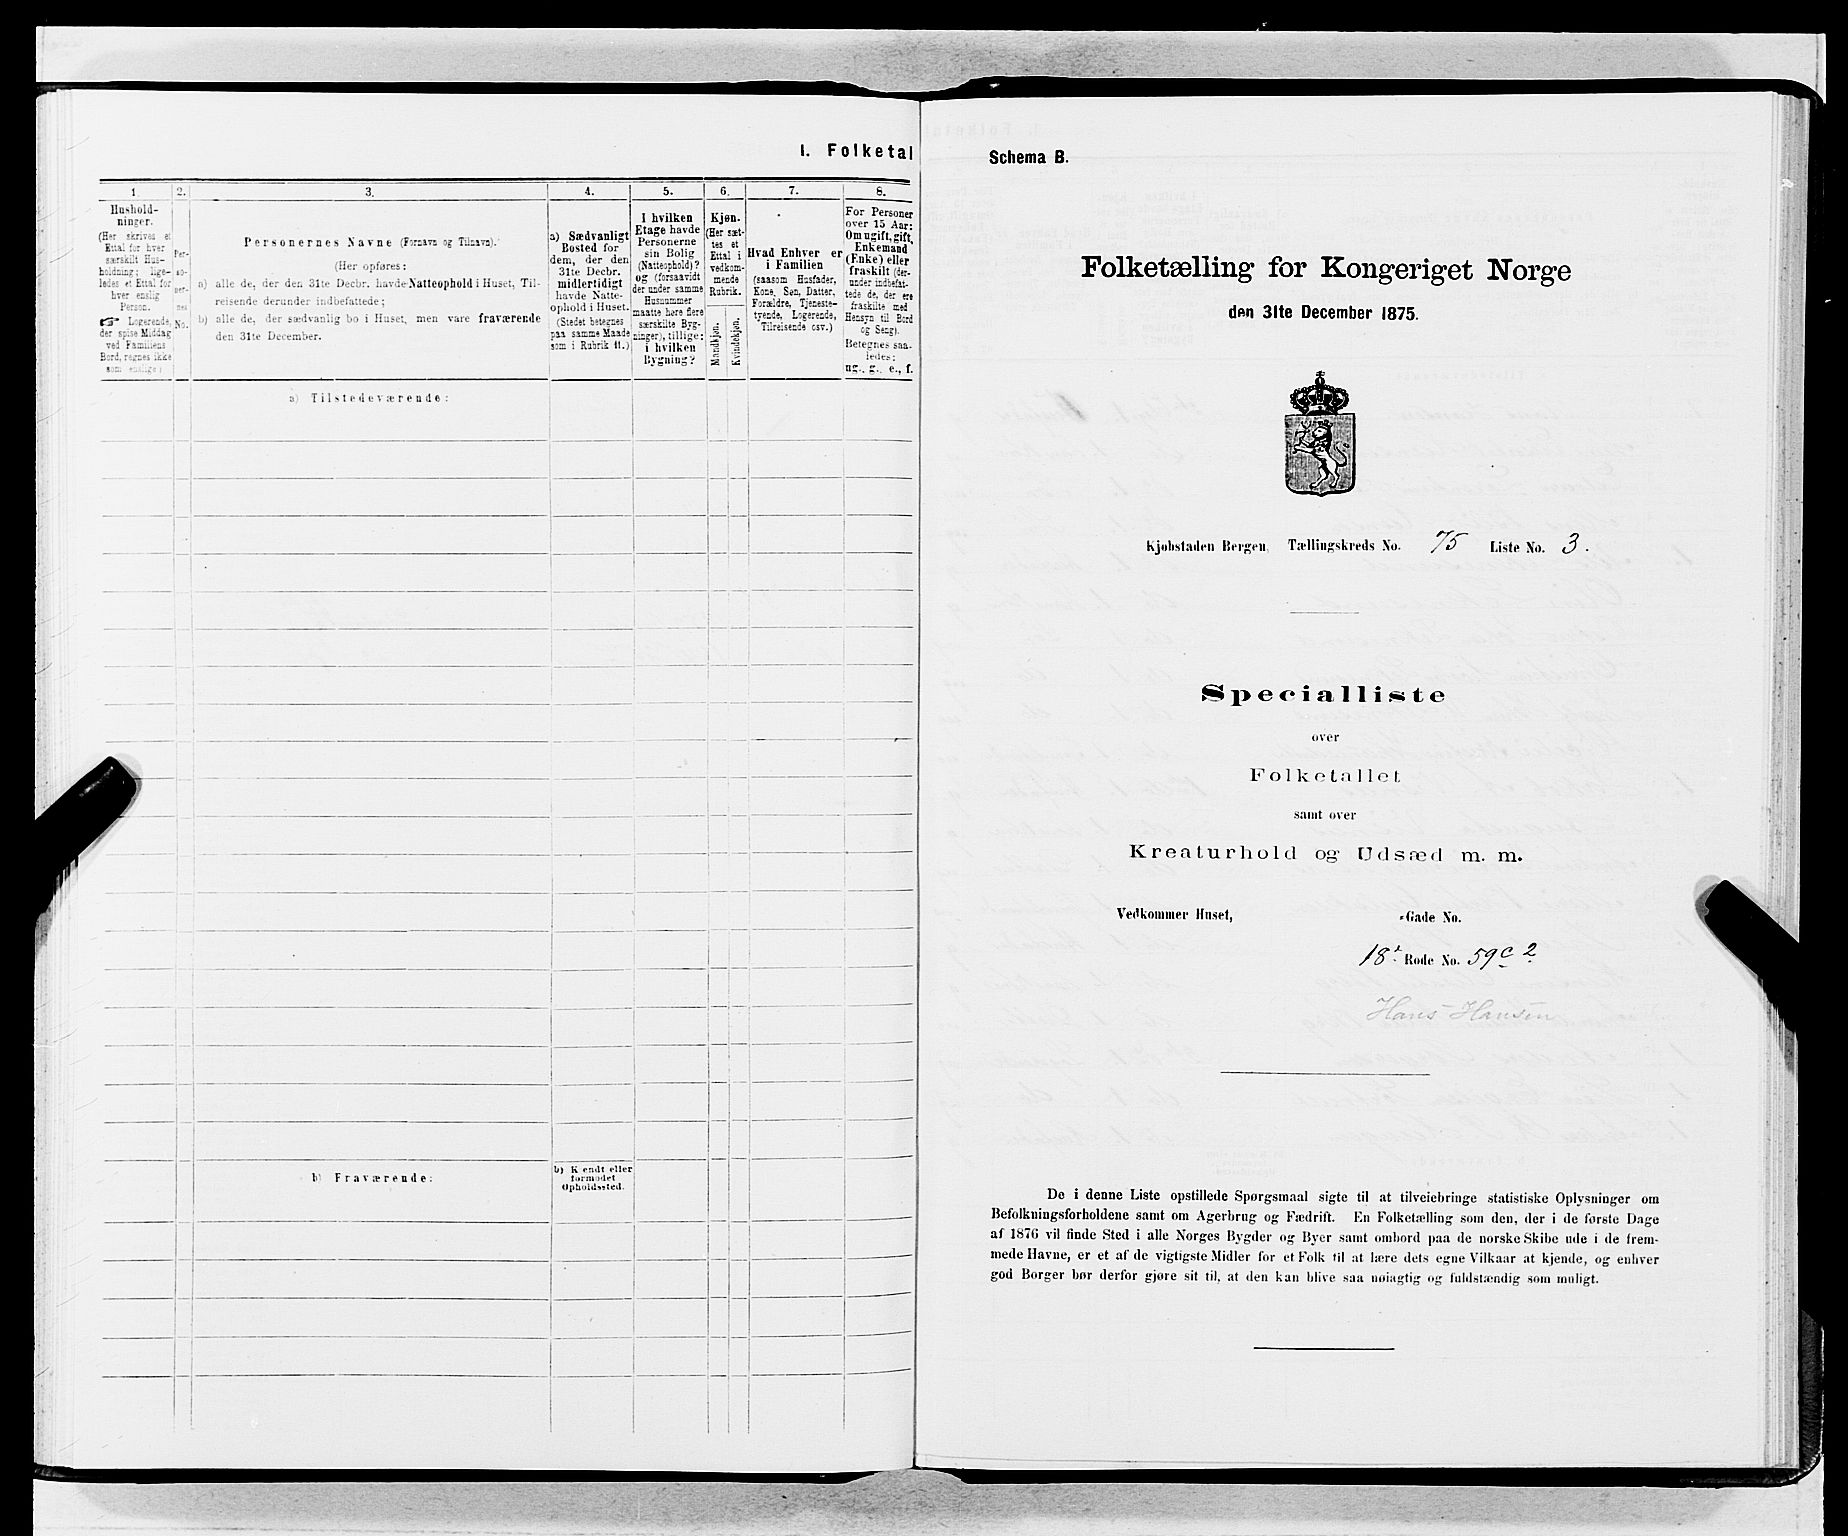 I. Folketal
1. 2. 3. 4. 5. 6. 7. 8.
Hushold-
ninger.
(Her skrives et
Ettal for hver
særskilt Hus-
holdning; lige-
ledes et Ettal for
hver enslig
Person.
☞ Logerende,
der spise Middag
ved Familiens
Bord, regnes ikke
som enslige)
Per-
so-
ner-
nes
No.
Personernes Navne (Fornavn og Tilnavn).
(Her opføres:
a) alle de, der den 31te Decbr. havde Natteophold i Huset, Til-
reisende derunder indbefattede;
b) alle de, der sædvanlig bo i Huset, men vare fraværende
den 31te December.
a) Sædvanligt
Bosted for
dem, der den
31te Decbr.
midlertidigt
havde Natte-
ophold i Huset.
(Stedet betegnes
paa samme Maade
som i Rubrik 11.)
I hvilken
Etage havde
Personerne
sin Bolig
(Natteophold)?
og (forsaavidt
der under samme
Husnummer
maatte høre flere
særskilte Byg-
ninger), tillige:
i hvilken
Bygning?
Kjøn.
(Her sæt-
tes et
Ettal i
vedkom-
mende
Rubrik.
Mandkjøn.
Kvindekjøn.
Hvad Enhver er
i Familien
(saasom Husfader,
Kone, Søn, Datter,
Forældre, Tjeneste-
tyende, Logerende,
Tilreisende osv.)
For Personer
over 15 Aar:
Om ugift, gift,
Enkemand
(Enke) eller
fraskilt (der-
under indbefat-
tede de, der ere
fraskilte med
Hensyn til Bord
og Seng).
Betegnes saa-
ledes:
ug., g., e., f.
a) Tilstedeværende:
b) Fraværende:
b) Kjendt eller
formodet
Opholdssted.
Schema B.
Folketælling for Kongeriget Norge
den 31te December 1875.
Kjøbstaden Bergen, Tællingskreds No. 75 Liste No. 3.
Specialliste
over
Folketallet
samt over
Kreaturhold og Udsæd m. m.
Vedkommer Huset, -Gade No.
18. Rode No. 59 c 2
Hans Hansen
De i denne Liste opstillede Spørgsmaal sigte til at tilveiebringe statistiske Oplysninger om
Befolkningsforholdene samt om Agerbrug og Fædrift. En Folketælling som den, der i de første Dage
af 1876 vil finde Sted i alle Norges Bygder og Byer samt ombord paa de norske Skibe ude i de frem-
mede Havne, er et af de vigtigste Midler for et Folk til at lære dets egne Vilkaar at kjende, og enhver
god Borger bør derfor gjøre sit til, at den kan blive saa nøiagtig og fuldstændig som muligt.